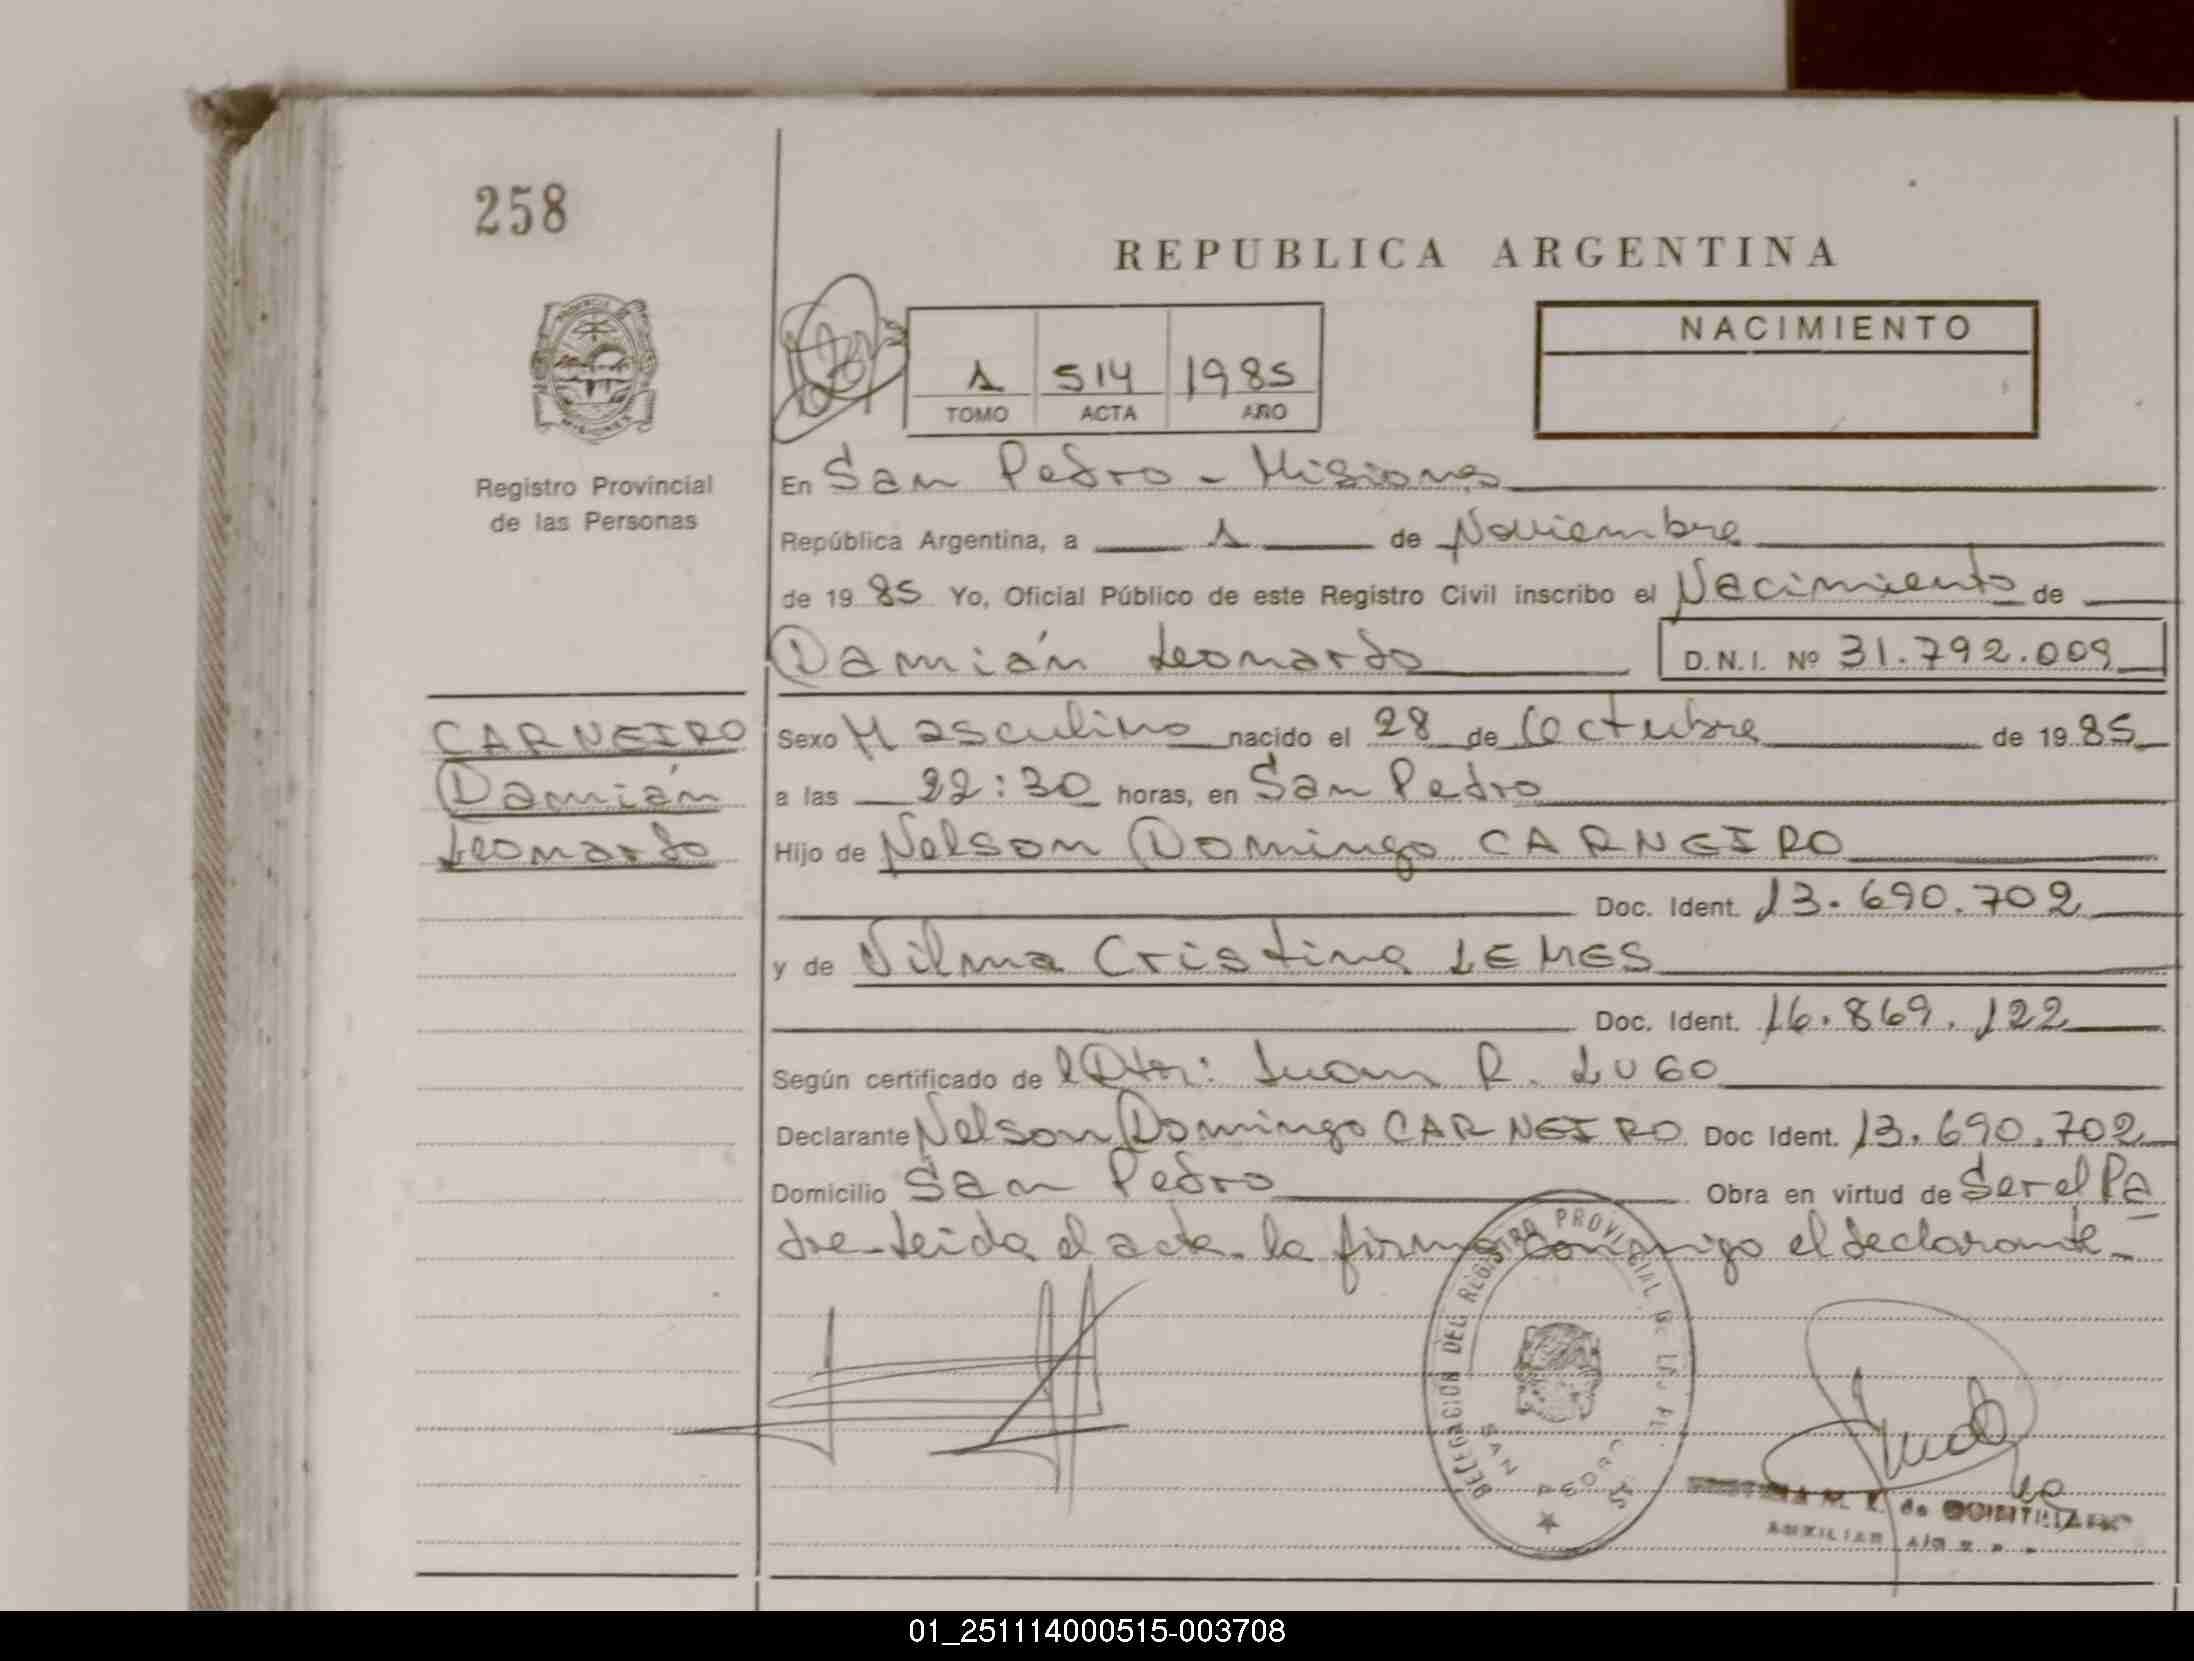 258
REPUBLICA ARGENTINA
NACIMIENTO
1 514 1985
TOMO ACTA AÑO
PROVINCIA
MISIONES
Registro Provincial
de las Personas
En San Pedro - Misiones
República Argentina, a 1 de Noviembre
de 19 85 Yo, Oficial Público de este Registro Civil inscribo el Nacimiento de
Damián Leonardo D.N.I. Nº 31.792.009
CARNEIRO
Damián
Leonardo
Sexo Masculino nacido el 28 de Octubre de 19 85
a las 22:30 horas, en San Pedro
Hijo de Nelson Domingo CARNEIRO
Doc. Ident. 13.690.702
y de Vilma Cristina LEMES
Doc. Ident. 16.869.122
Según certificado de l Dtor: Juan R. LUGO
Declarante Nelson Domingo CARNEIRO Doc Ident. 13.690.702
Domicilio San Pedro Obra en virtud de Ser el Pa
dre-Leida el acta la firma conmigo el declarante-
DELEGACION DEL REGISTRO PROVINCIAL DE LAS PE
SAN PEDRO
M. L. de QUINTILIANO
AUXILIAR
01_251114000515-003708